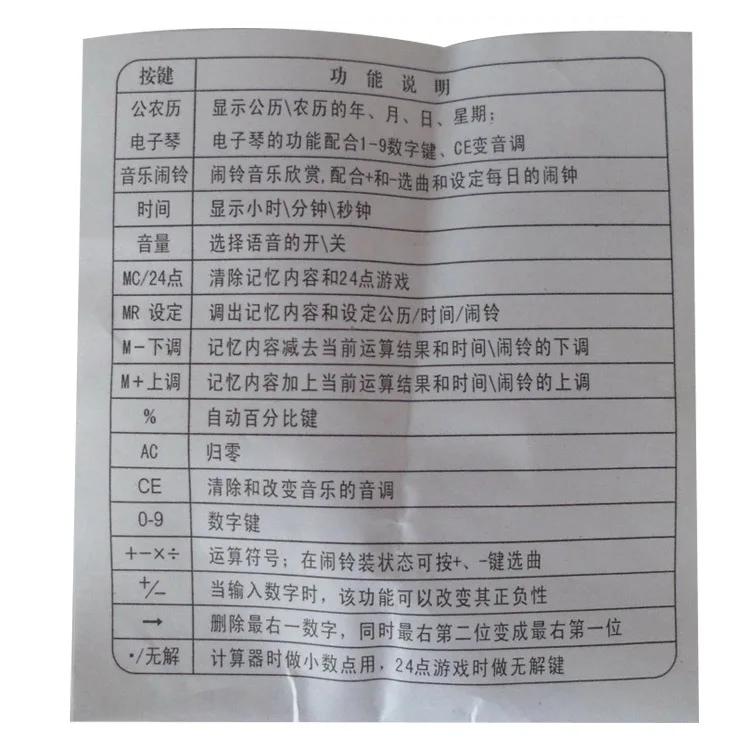 按键 功能说明
公农历 显示公历\农历的年、月、日、星期；
电子琴 电子琴的功能配合1-9数字键、CE变音调
音乐闹铃 闹铃音乐欣赏,配合+和-选曲和设定每日的闹钟
时间 显示小时\分钟\秒钟
音量 选择语音的开\关
MC/24点 清除记忆内容和24点游戏
MR 设定 调出记忆内容和设定公历/时间/闹铃
M－下调 记忆内容减去当前运算结果和时间\闹铃的下调
M＋上调 记忆内容加上当前运算结果和时间\闹铃的上调
% 自动百分比键
AC 归零
CE 清除和改变音乐的音调
0-9 数字键
＋－×÷ 运算符号；在闹铃装状态可按+、-键选曲
+/− 当输入数字时，该功能可以改变其正负性
→ 删除最右一数字，同时最右第二位变成最右第一位
·/无解 计算器时做小数点用，24点游戏时做无解键